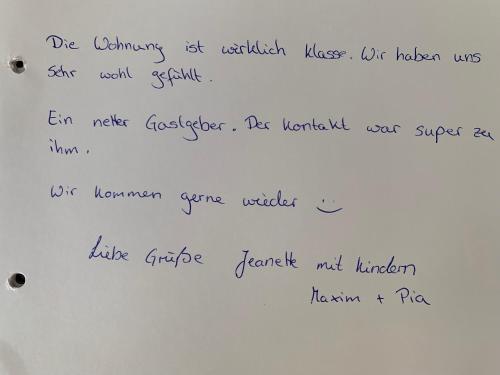 Die Wohnung ist wirklich klasse. Wir haben uns
sehr wohl gefühlt.
Ein netter Gastgeber. Der Kontakt war super zu
ihm.
Wir kommen gerne wieder :)
Liebe Grüße Jeanette mit Kindern
Maxim + Pia